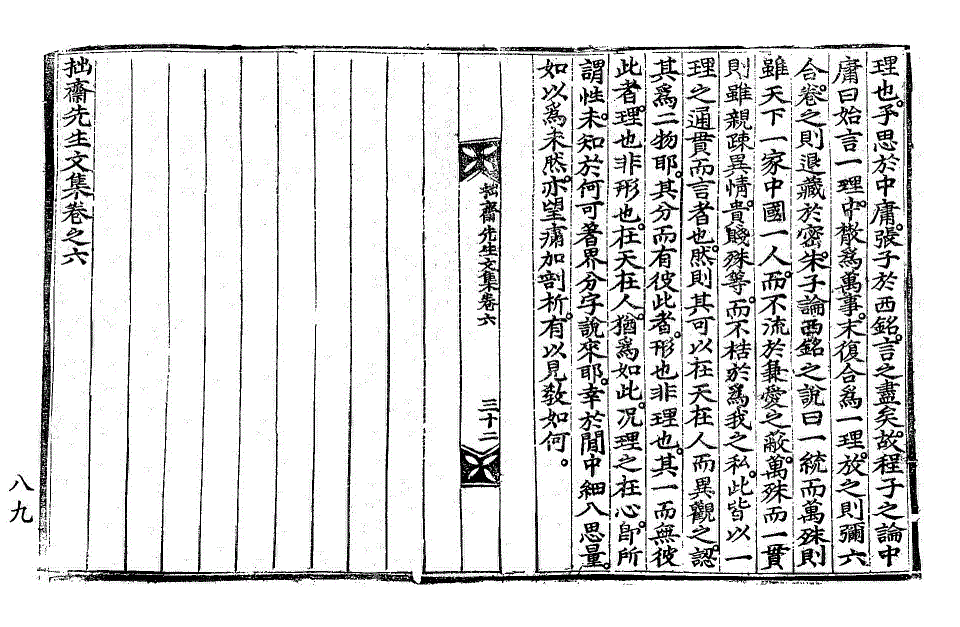 理也。子思於中庸。張子於西銘。言之盡矣。故程子之論中
庸曰始言一理。中散爲萬事。末復合爲一理。放之則彌六
合。卷之則退藏於密。朱子論西銘之說曰一統而萬殊則
雖天下一家中國一人。而不流於兼愛之蔽。萬殊而一貫
則雖親疎異情。貴賤殊等。而不梏於爲我之私。此皆以一
理之通貫而言者也。然則其可以在天在人而異觀之。認
其爲二物耶。其分而有彼此者。形也非理也。其一而無彼
此者。理也非形也。在天在人。猶爲如此。况理之在心。卽所
謂性。未知於何可著界分字說來耶。幸於閒中細入思量。
如以爲未然。亦望痛加剖析。有以見敎如何。
拙齋先生文集卷六
三十二
拙齋先生文集卷之六
八九